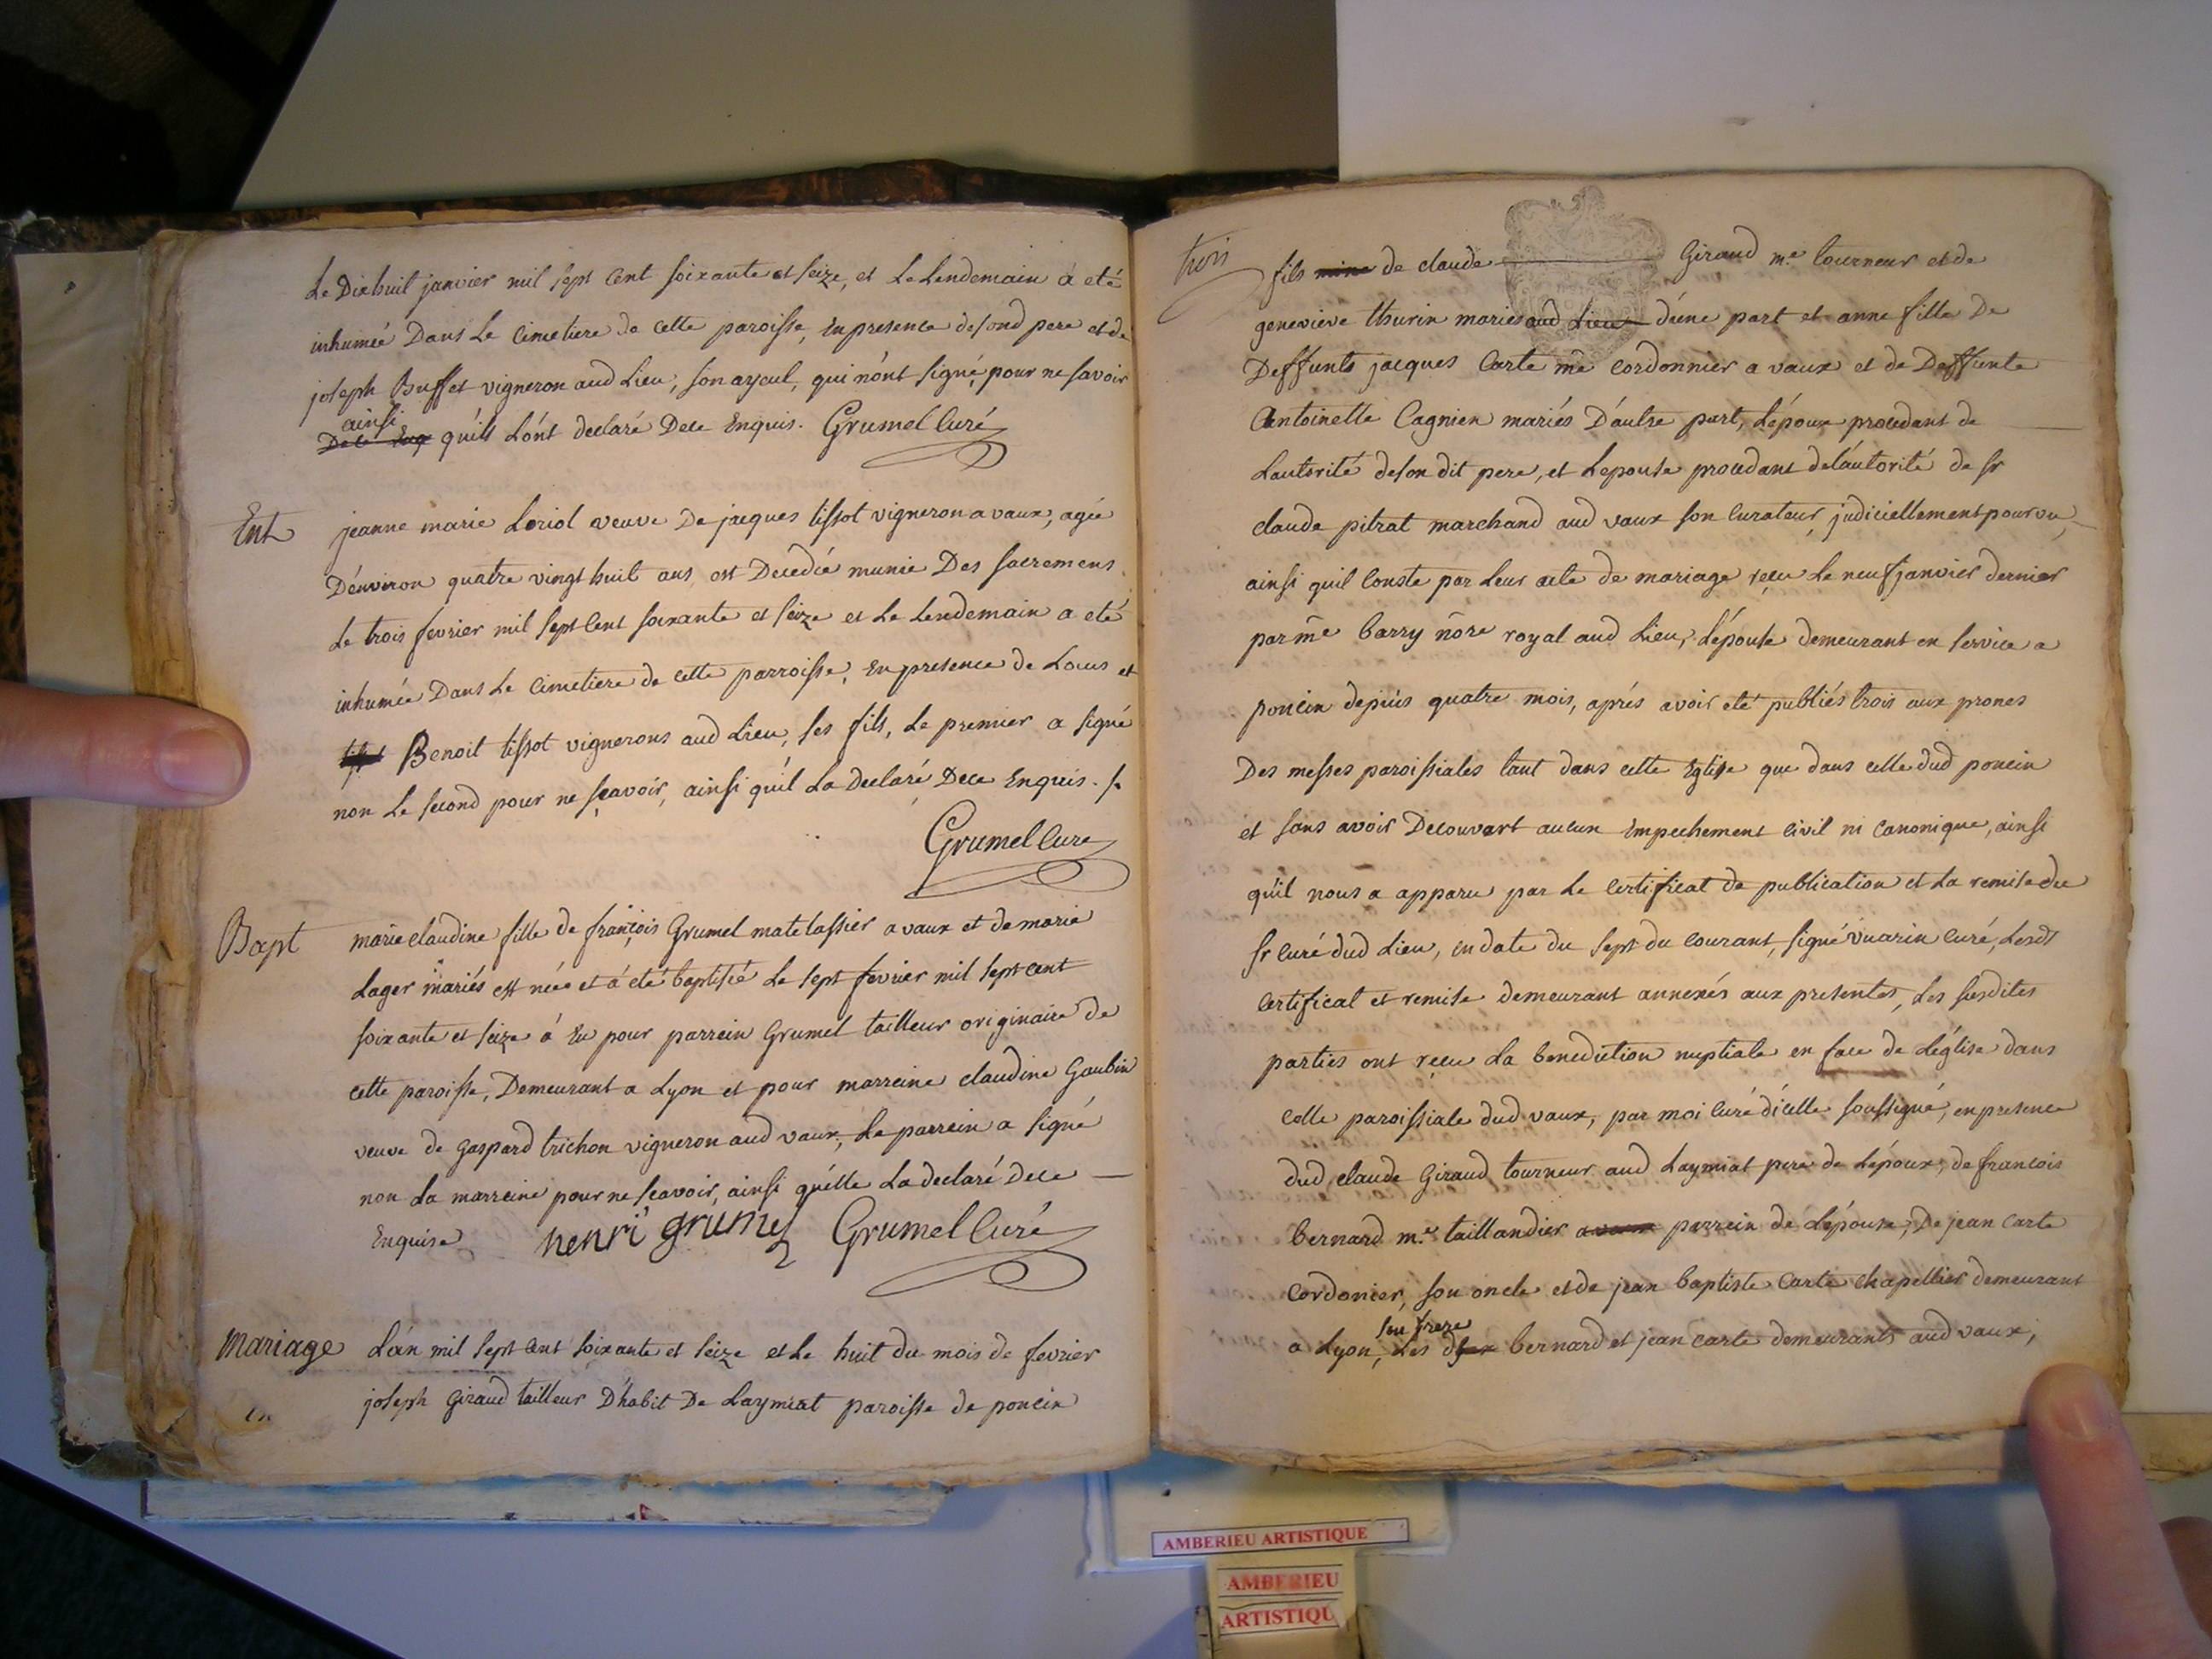 Le Dixhuit janvier mil sept Cent soixante et seize, et Le Lendemain a eté
inhumée Dans Le Cimetiere de cette paroisse, en presence de sond pere et de
joseph Buffet vigneron aud Lieu, son ayeul, qui n'ont signé, pour ne savoir
ainsi
qu'ils L'ont declaré De ce Enquis. Grumel Curé
Ent
jeanne marie Loriol veuve De jacques tissot vigneron a vaux, agée
D'environ quatre vingt huit ans est Decedée munie Des sacremens
Le trois fevrier mil sept Cent soixante et seize et Le Lendemain a eté
inhumée Dans Le Cimetiere de cette parroisse, en presence de Louis et
Benoit tissot vignerons aud Lieu, ses fils, Le premier a signé
non Le second pour ne sçavoir, ainsi qu'il La Declaré De ce Enquis.
Grumel Curé
Bapt
marie claudine fille de françois Grumel matelassier a vaux et de marie
Lager mariés est née et á eté baptisée Le sept fevrier mil sept cent
soixante et seize á Eu pour parrein Grumel tailleur originaire de
cette paroisse, Demeurant a Lyon et pour marreine claudine Gaubin
veuve de gaspard trichon vigneron aud vaux, Le parrein a signé
non La marreine pour ne sçavoir, ainsi qu'elle La declaré De ce
Enquise henri grumel Grumel Curé
Mariage
L'an mil sept Cent soixante et seize et Le huit du mois de fevrier
joseph Giraud tailleur D'habit De Laymiat paroisse de poncin
trois
fils de claude Giraud me tourneur et de
genevieve thurin mariés aud Lieu d'une part et anne fille De
Deffunts jacques Carte me cordonnier a vaux et de Deffunte
Antoinette Cagnien mariés D'autre part, L'époux procedant de
Lautorité de son dit pere, et Lepouse procedant de l'autorité de sr
claude pitrat marchand aud vaux son Curateur, judiciellement pourvu,
ainsi quil Conste par Leur acte de mariage reçu Le neuf janvier dernier
par me barry nore royal aud Lieu, L'épouse demeurant en service a
poncin depuis quatre mois, aprés avoir eté publiés trois aux prones
Des messes paroissiales tant dans cette Eglise que dans celle dud poncin
et sans avoir Decouvert aucun Empechement Civil ni Canonique, ainsi
qu'il nous a apparu par Le Certificat de publication et La remise du
sr Curé dud Lieu, en date du sept du Courant, signé vuarin Curé, Lesdt
Certificat et remise demeurant annexés aux presentes, Les susdites
parties ont reçu La benediction nuptiale en face de L'église dans
celle paroissiale dud vaux, par moi Curé d'icelle soussigné, en presence
dud claude Giraud tourneur aud Laymiat pere de L'époux, de francois
bernard me taillandier parrein de L'épouse, De jean Carte
Cordonier, son oncle et de jean baptiste Carte Chapellier demeurant
son frere
a Lyon, Les bernard et jean carte demeurants aud vaux,
AMBERIEU ARTISTIQUE
AMBERIEU
ARTISTIQU